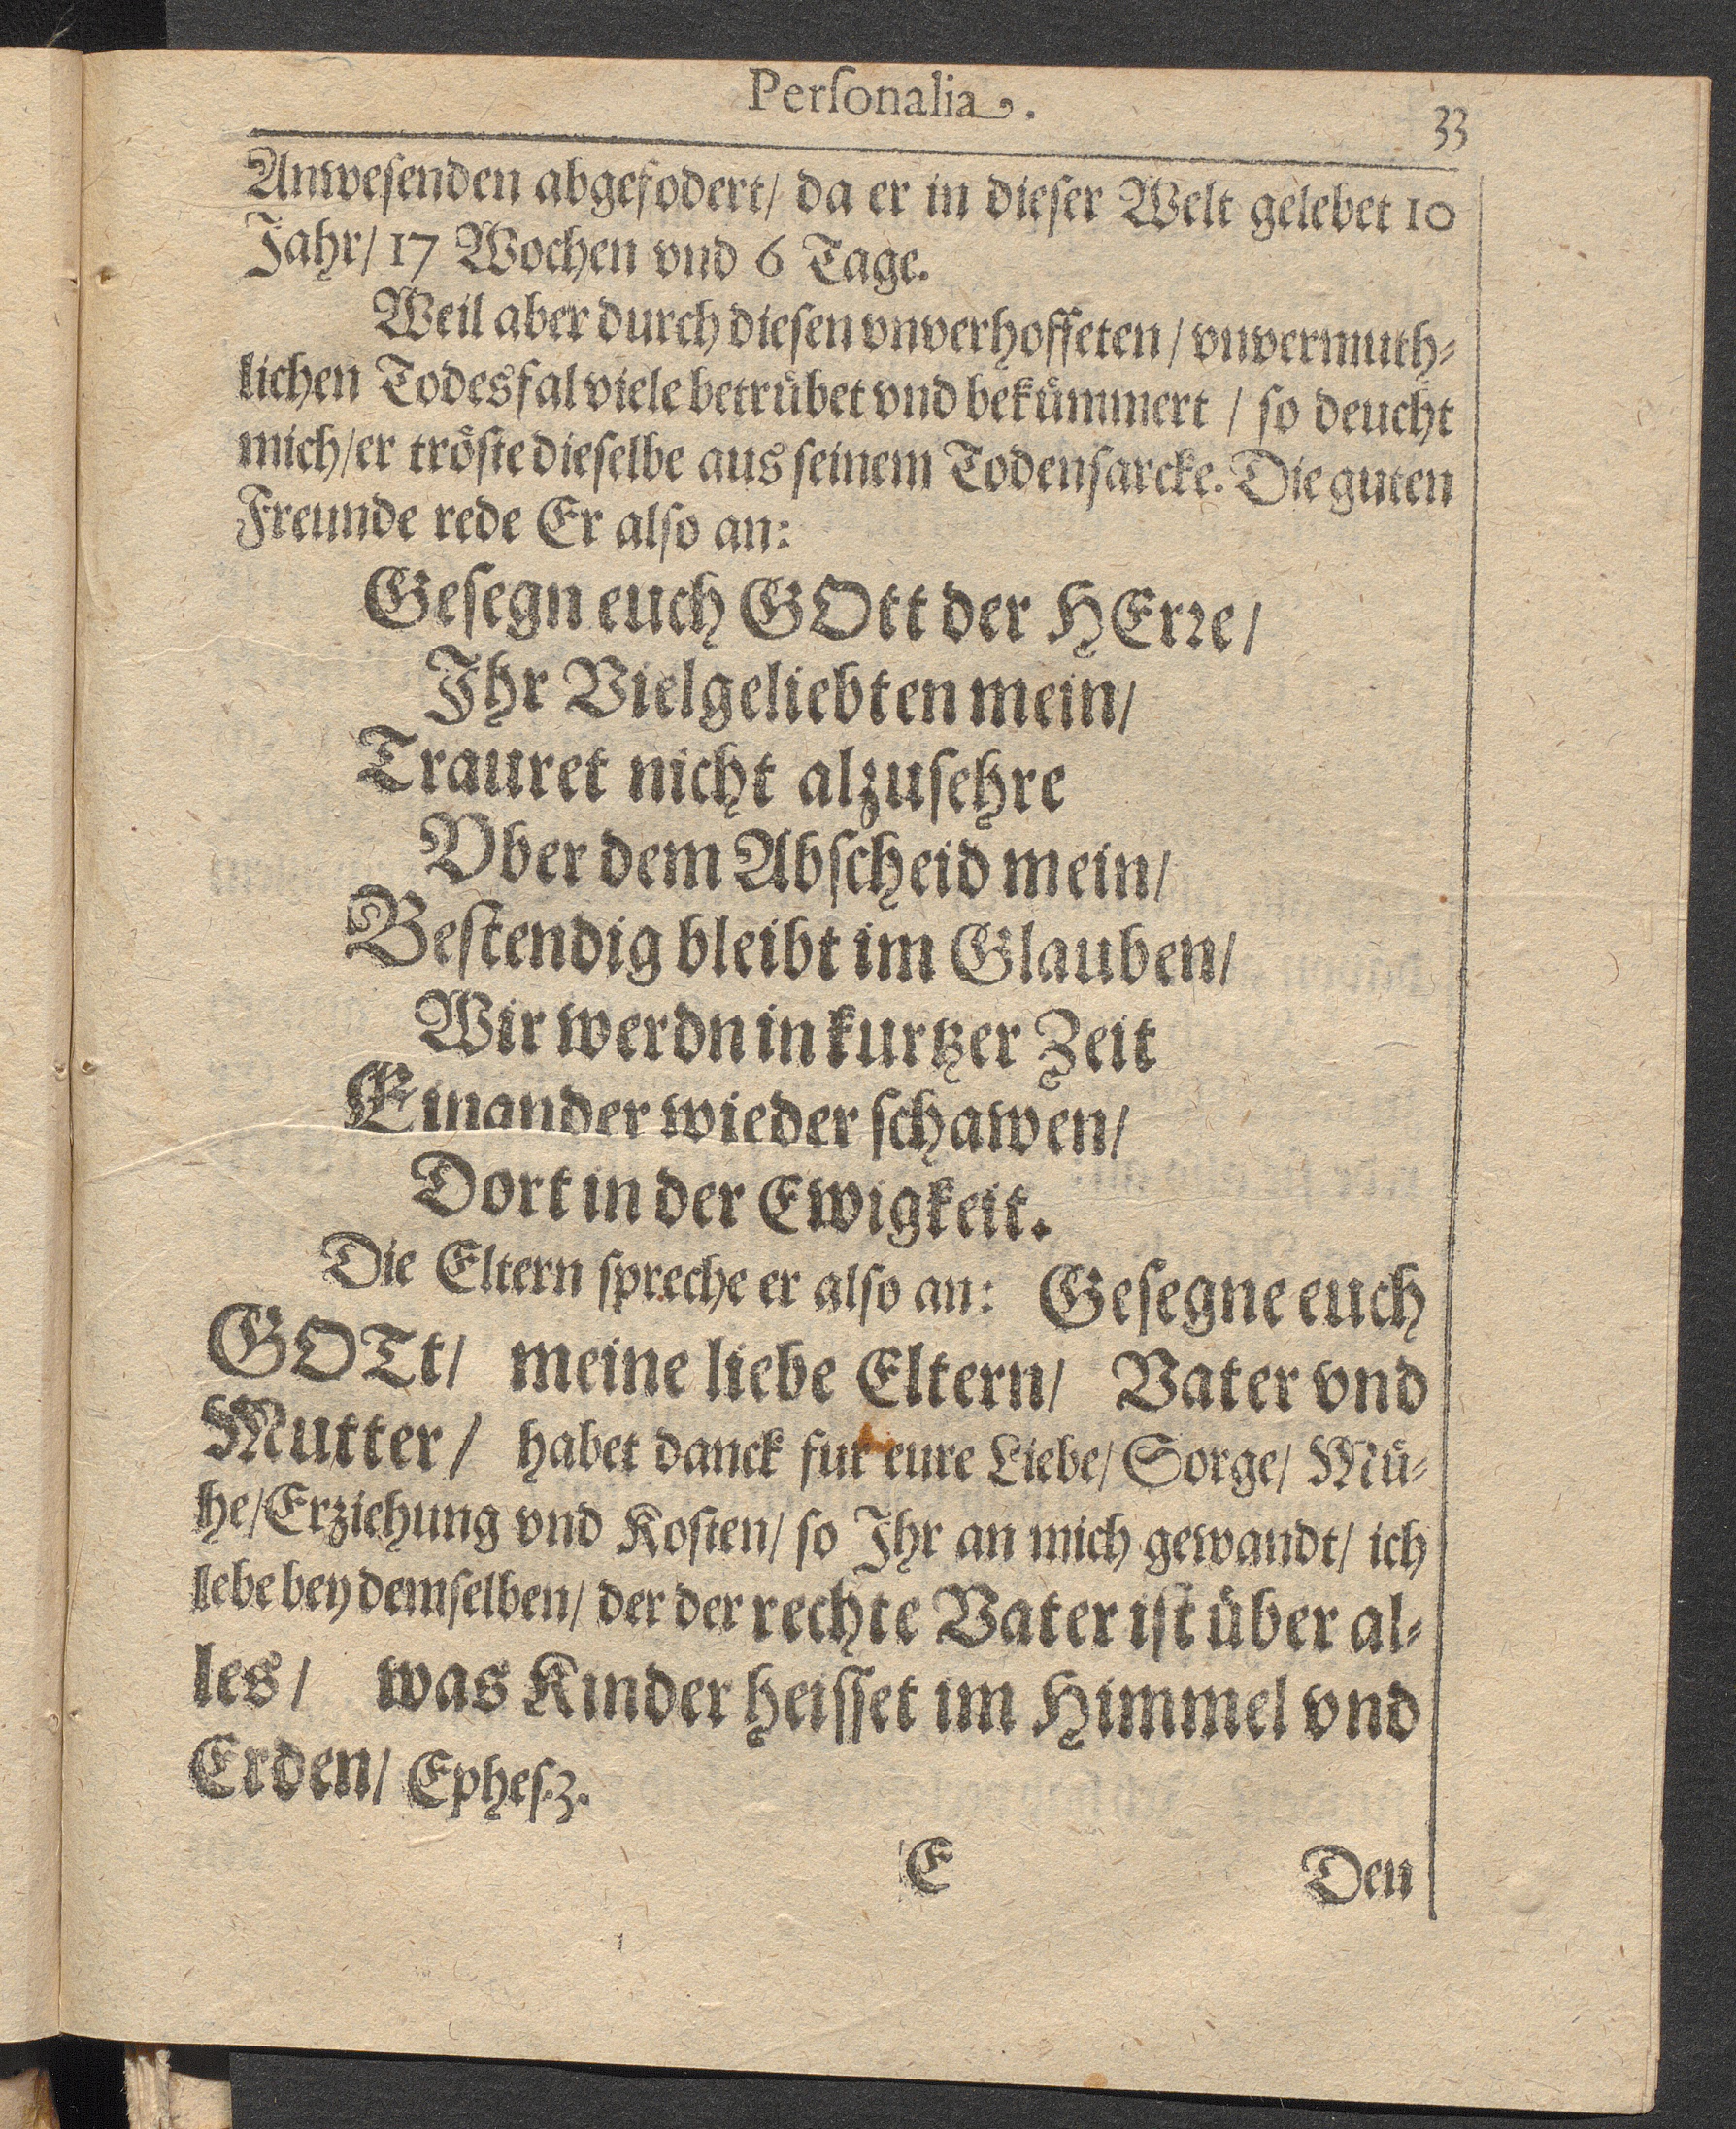 Personalia.
33
Anwesenden abgefodert/ da er in dieser Welt gelebet 10
Jahr/ 17 Wochen vnd 6 Tage.
Weil aber durch diesen vnverhoffeten/ vnvermuth⸗
lichen Todesfal viele betrübet vnd bekümmert / so deucht
mich/er tröste dieselbe aus seinem Todensarcke. Die guten
Freunde rede Er also an:
Gesegn euch GOtt der HErꝛe/
Ihr Vielgeliebten mein/
Trauret nicht alzusehre
Vber dem Abscheid mein/
Bestendig bleibt im Glauben/
Wir werdn in kurtzer Zeit
Einander wieder schawen/
Dort in der Ewigkeit.
Die Eltern spreche er also an: Gesegne euch
GOTt/ meine liebe Eltern/ Vater vnd
Mutter/ habet danck fur eure Liebe/ Sorge/ Mü⸗
he/Erziehung vnd Kosten/ so Ihr an mich gewandt/ ich
lebe bey demselben/ der der rechte Vater ist über al⸗
les/ was Kinder heisset im Himmel vnd
Erden/ Ephes.3.
E
Den